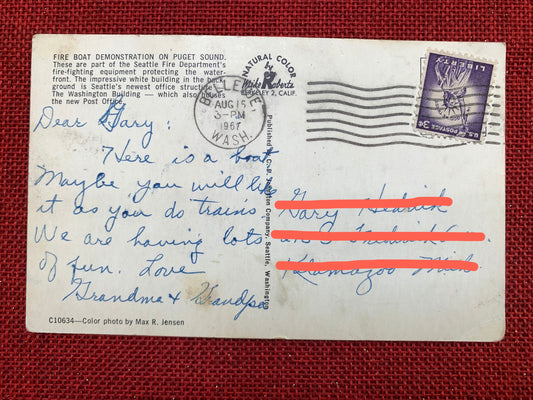 FIRE BOAT DEMONSTRATION ON PUGET SOUND.
These are part of the Seattle Fire Department's
fire-fighting equipment protecting the water-
front. The impressive white building in the back
ground is Seattle's newest office structure.
The Washington Building — which also houses
the new Post Office.
NATURAL COLOR
Mike Roberts
BERKELEY 2, CALIF.
BELLEVUE
AUG 15
3-PM
1967
WASH.
LIBERTY
U.S. POSTAGE 3¢
Dear Gary:
Here is a boat
Maybe you will like
it as you do trains
We are having lots
of fun. Love
Grandma & Grandpa
Published by C. P. Johnston Company, Seattle, Washington
C10634—Color photo by Max R. Jensen